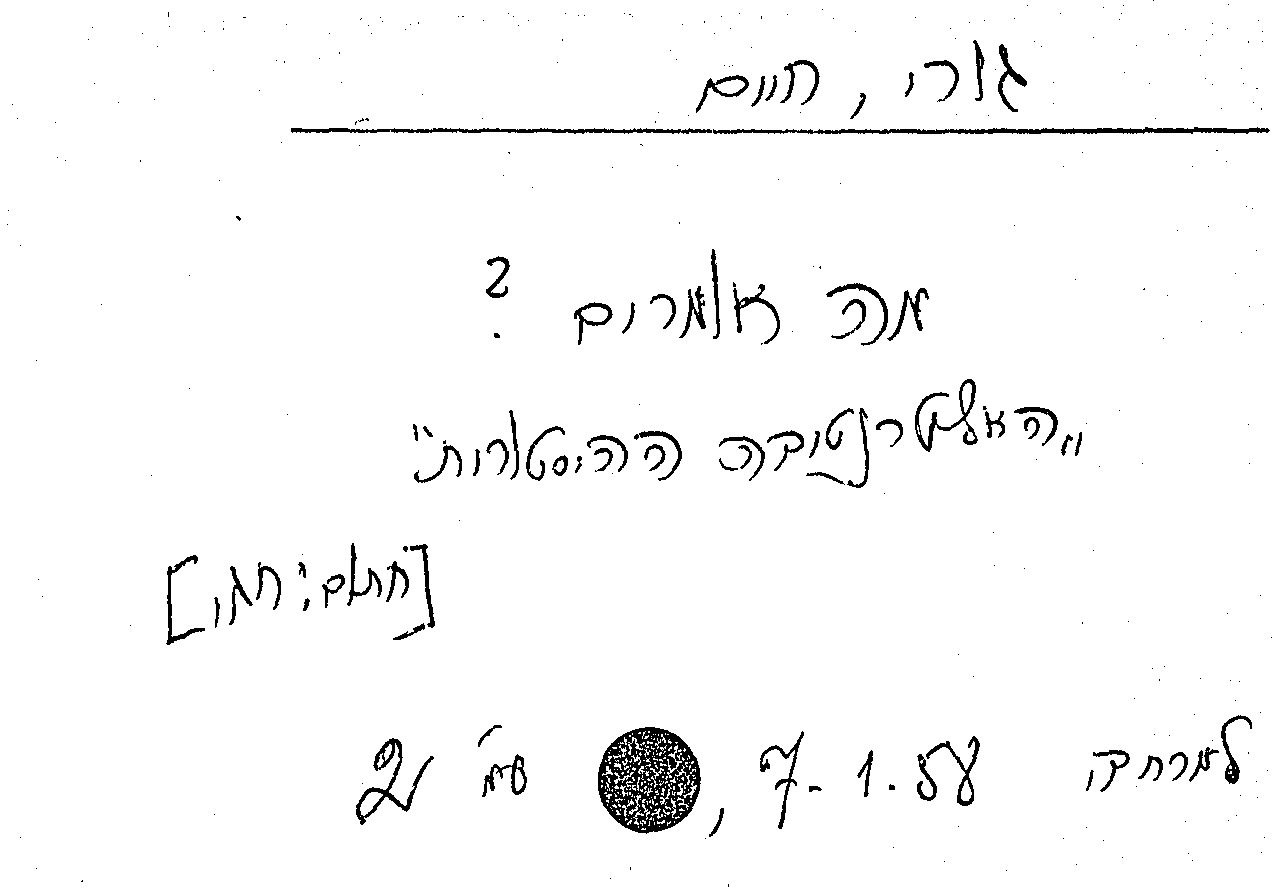 גורי, חיים
מה אומרים?
"האלטרנטיבה ההיסטורית"
[חתום: חגי]
למרחב 7.1.58, עמ' 2